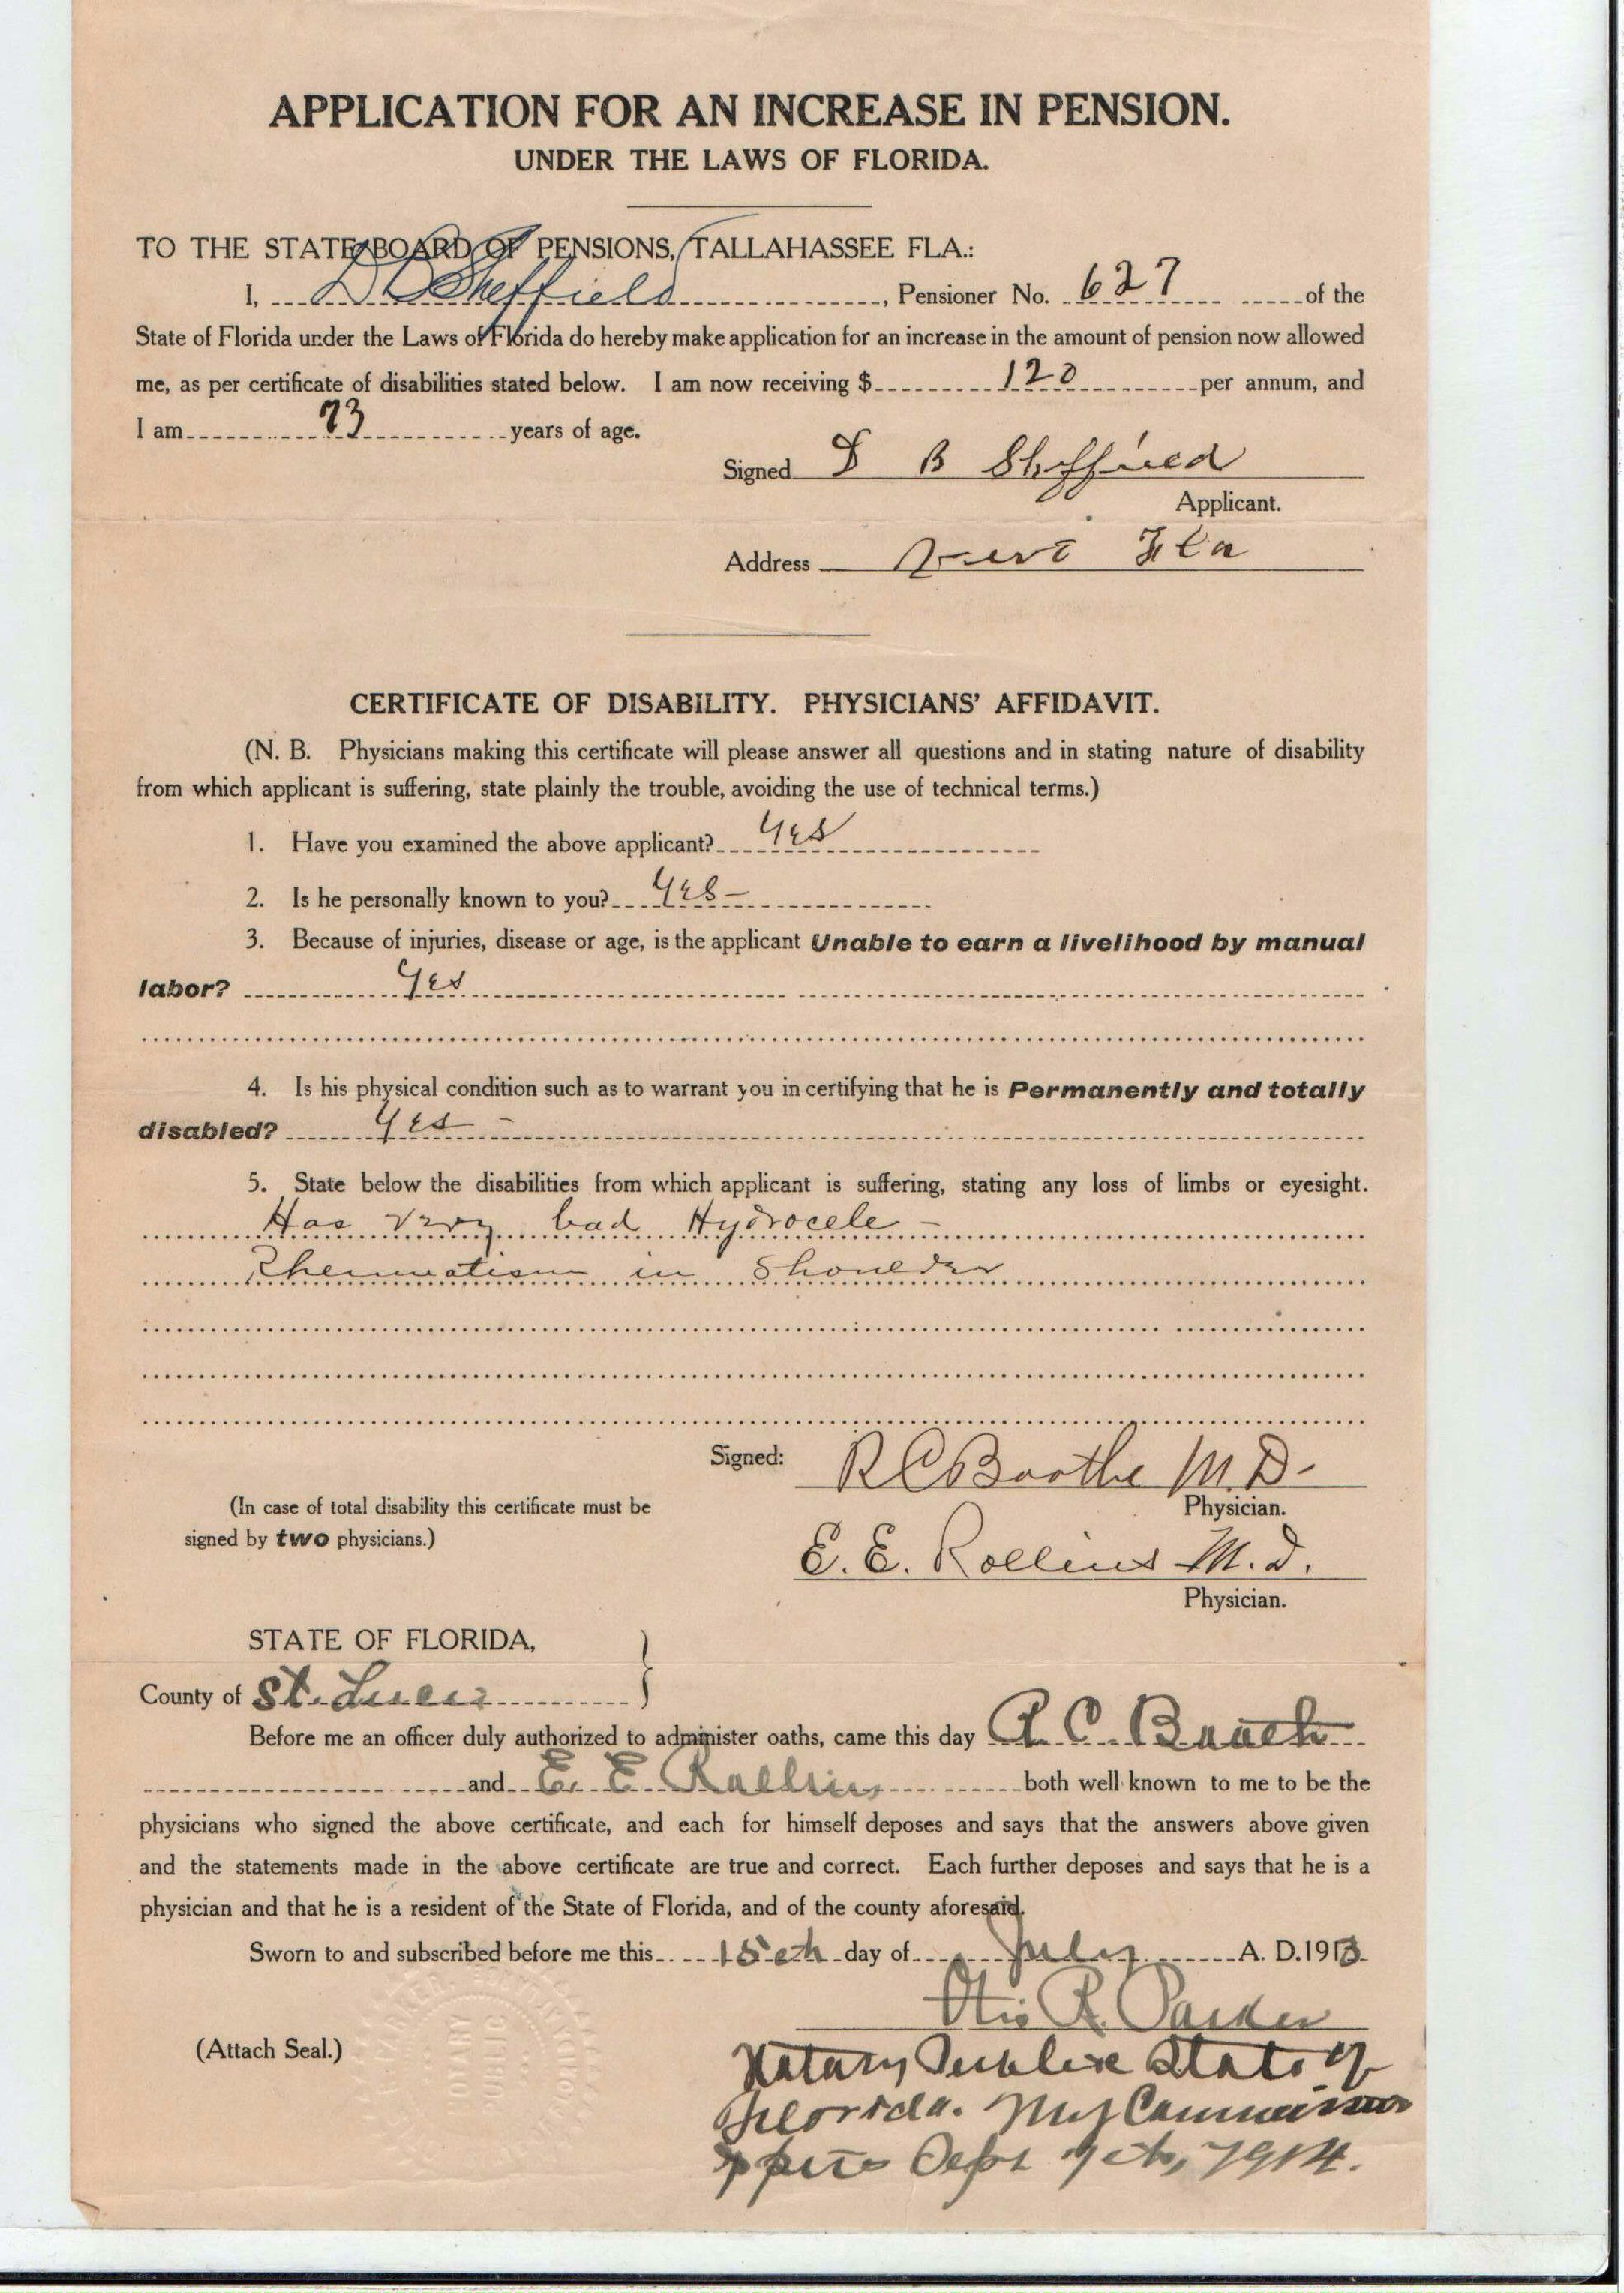 APPLICATION FOR AN INCREASE IN PENSION.
UNDER THE LAWS OF FLORIDA.
TO THE STATE BOARD OF PENSIONS, TALLAHASSEE FLA.:
I, D B Sheffield, Pensioner No. 627 of the
State of Florida under the Laws of Florida do hereby make application for an increase in the amount of pension now allowed
me, as per certificate of disabilities stated below. I am now receiving $ 120 per annum, and
I am 73 years of age.
Signed D B Sheffield
Applicant.
Address Fla
CERTIFICATE OF DISABILITY. PHYSICIANS' AFFIDAVIT.
(N. B. Physicians making this certificate will please answer all questions and in stating nature of disability
from which applicant is suffering, state plainly the trouble, avoiding the use of technical terms.)
1. Have you examined the above applicant? Yes
2. Is he personally known to you? Yes -
3. Because of injuries, disease or age, is the applicant Unable to earn a livelihood by manual
labor? Yes
4. Is his physical condition such as to warrant you in certifying that he is Permanently and totally
disabled? Yes -
5. State below the disabilities from which applicant is suffering, stating any loss of limbs or eyesight.
Has very bad Hydrocele -
Rheumatism in Shoulder
Signed: R C Boothe M.D-
Physician.
(In case of total disability this certificate must be
signed by two physicians.)
E. E. Rollins M.D.
Physician.
STATE OF FLORIDA, }
County of St. Lucie
Before me an officer duly authorized to administer oaths, came this day R. C. 
and E. E. Rollins both well known to me to be the
physicians who signed the above certificate, and each for himself deposes and says that the answers above given
and the statements made in the above certificate are true and correct. Each further deposes and says that he is a
physician and that he is a resident of the State of Florida, and of the county aforesaid.
Sworn to and subscribed before me this 15th day of July A. D. 1913
Otis R. Parker
(Attach Seal.)
NOTARY
PUBLIC
Notary Public State of
Florida. My Commission
Expires Sept 7th, 1914.